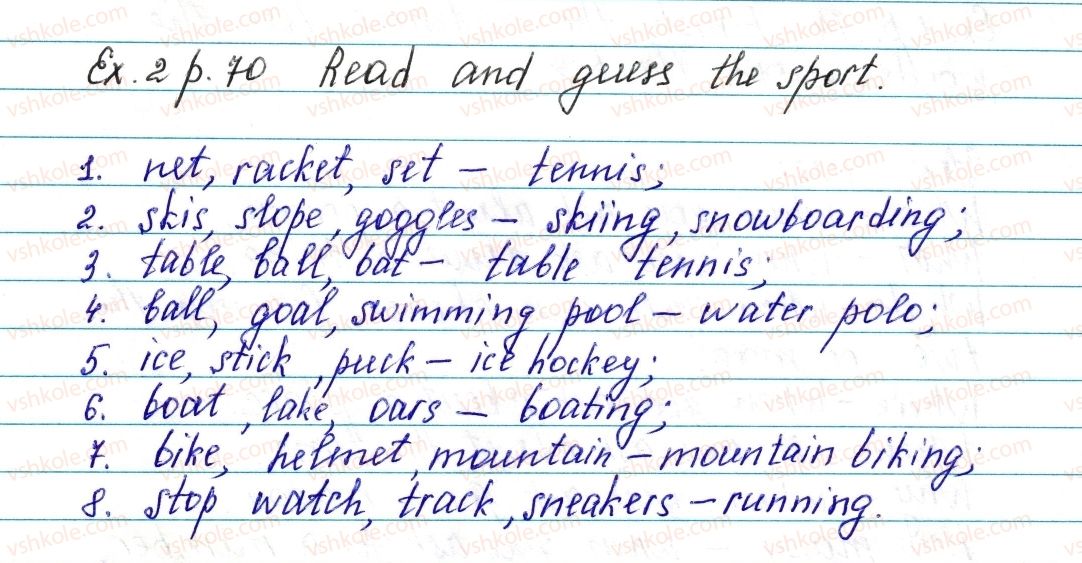 Ex. 2 p. 70 Read and guess the sport.
1. net, racket, set – tennis;
2. skis, slope, goggles – skiing, snowboarding;
3. table, ball, bat – table tennis;
4. ball, goal, swimming pool – water polo;
5. ice, stick, puck – ice hockey;
6. boat, lake, oars – boating;
7. bike, helmet, mountain – mountain biking;
8. stop watch, track, sneakers – running.